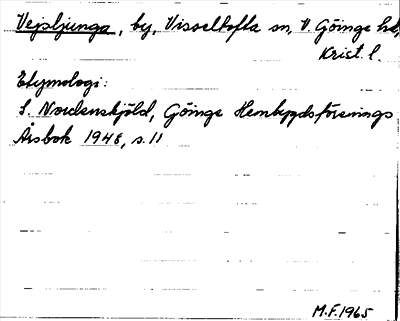 Vejsljunga, by, Visseltofta sn, V. Göinge hd,
Krist. l.
Etymologi:
S. Nordenskjöld, Göinge Hembygdsförenings
Årsbok 1948, s. 11
M.F. 1965